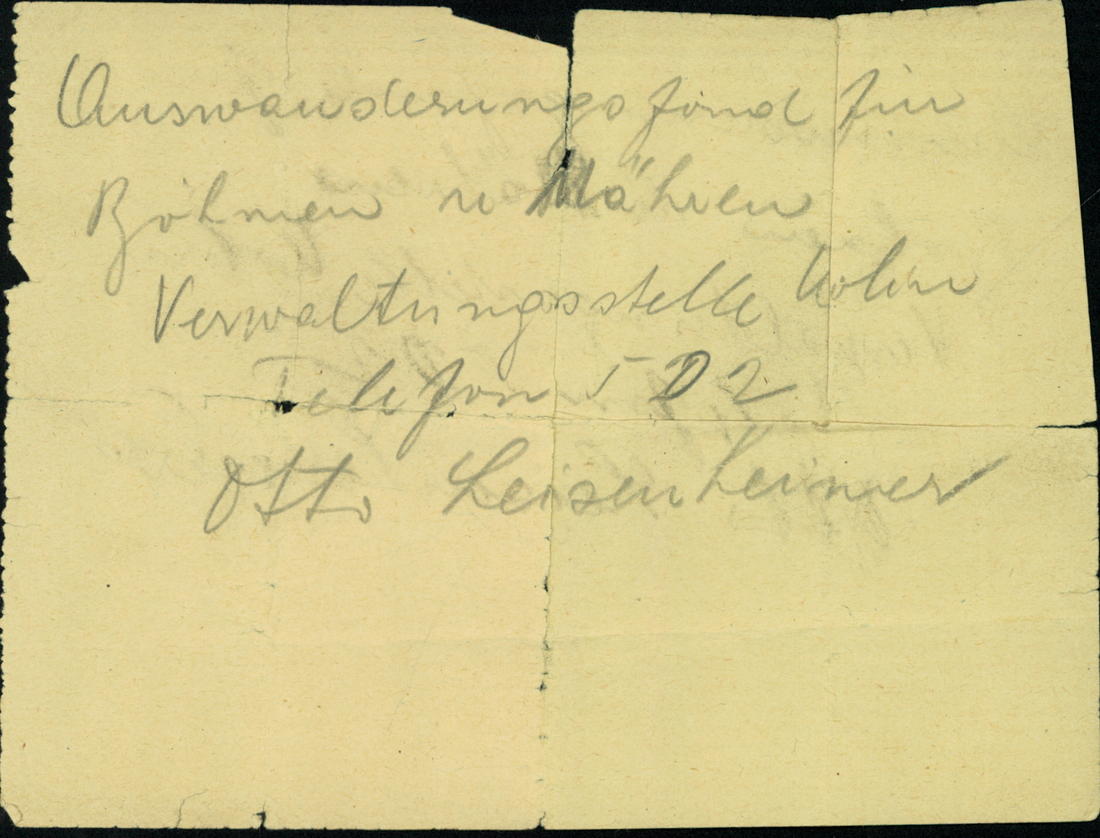 Auswanderungsfond für
Böhmen u Mähren
Verwaltungsstelle Kolin
Telefon 502
Otto Leisenheimer